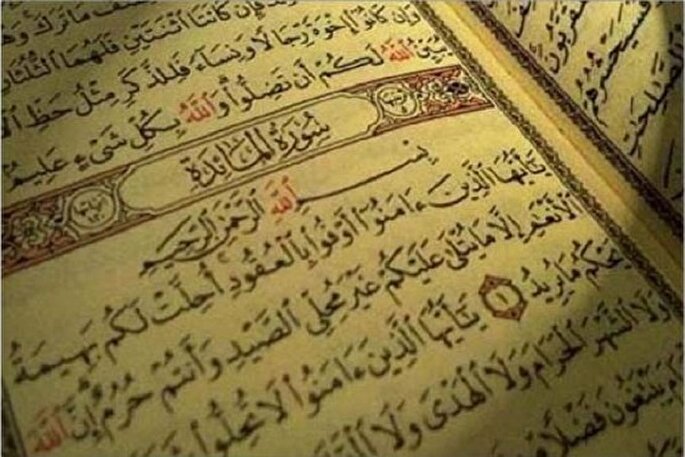 فَإِن كَانَتَا ٱثْنَتَيْنِ فَلَهُمَا ٱلثُّلُثَا
وَإِن كَانُوٓا۟ إِخْوَةً رِّجَالًا وَنِسَآءً فَلِلذَّكَرِ مِثْلُ حَظِّ ٱلْ
يُبَيِّنُ ٱللَّهُ لَكُمْ أَن تَضِلُّوا۟ وَٱللَّهُ بِكُلِّ شَىْءٍ عَلِيمٌ
سُورَةُ المَائِدَةِ
بِسْمِ ٱللَّهِ ٱلرَّحْمَٰنِ ٱلرَّحِيمِ
يَٰٓأَيُّهَا ٱلَّذِينَ ءَامَنُوٓا۟ أَوْفُوا۟ بِٱلْعُقُودِ أُحِلَّتْ لَكُم بَهِيمَةُ
ٱلْأَنْعَٰمِ إِلَّا مَا يُتْلَىٰ عَلَيْكُمْ غَيْرَ مُحِلِّى ٱلصَّيْدِ وَأَنتُمْ حُرُمٌ إِنَّ ٱللَّهَ
يَحْكُمُ مَا يُرِيدُ ١ يَٰٓأَيُّهَا ٱلَّذِينَ ءَامَنُوا۟ لَا تُحِلُّوا۟
وَلَا ٱلشَّهْرَ ٱلْحَرَامَ وَلَا ٱلْهَدْىَ وَلَا
يَبْتَغُونَ فَضْلًا